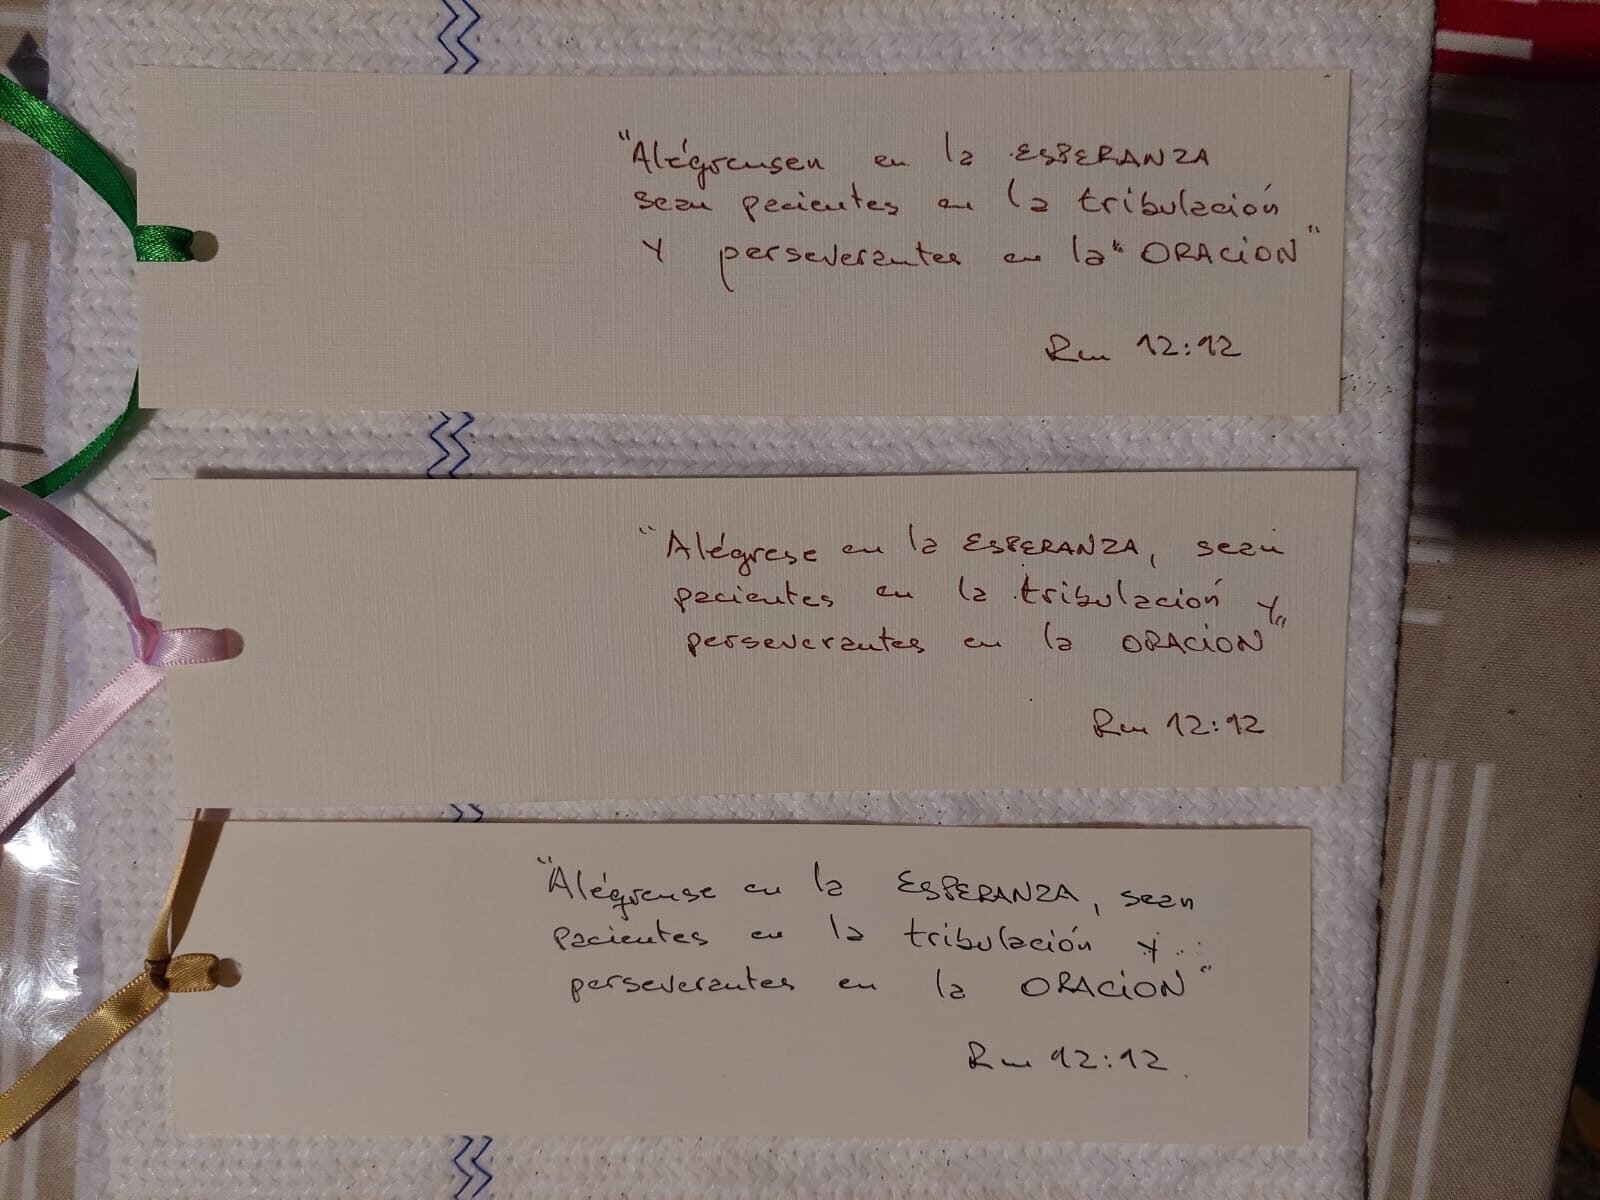 "Alégrensen en la ESPERANZA
sean pacientes en la tribulación
Y perseverantes en la " ORACION"
Rm 12:12
"Alégrese en la ESPERANZA, sean
pacientes en la tribulación Y
perseverantes en la ORACION"
Rm 12:12
"Alégrense en la ESPERANZA, sean
pacientes en la tribulación Y
perseverantes en la ORACION"
Rm 12:12.